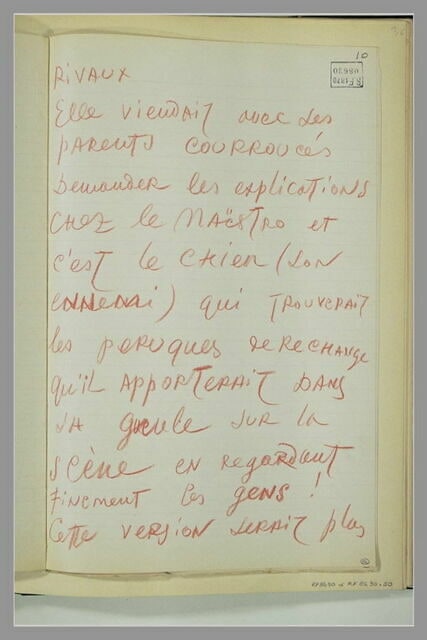 10
RIVAUX
Elle viendrait avec ses
parents courroucés
demander les explications
chez le Maëstro et
c'est le chien (son
ennemi) qui trouverait
les peruques de rechange
qu'il apporterait dans
sa gueule sur la
scène en regardant
finement les gens !
Cette version serait plus